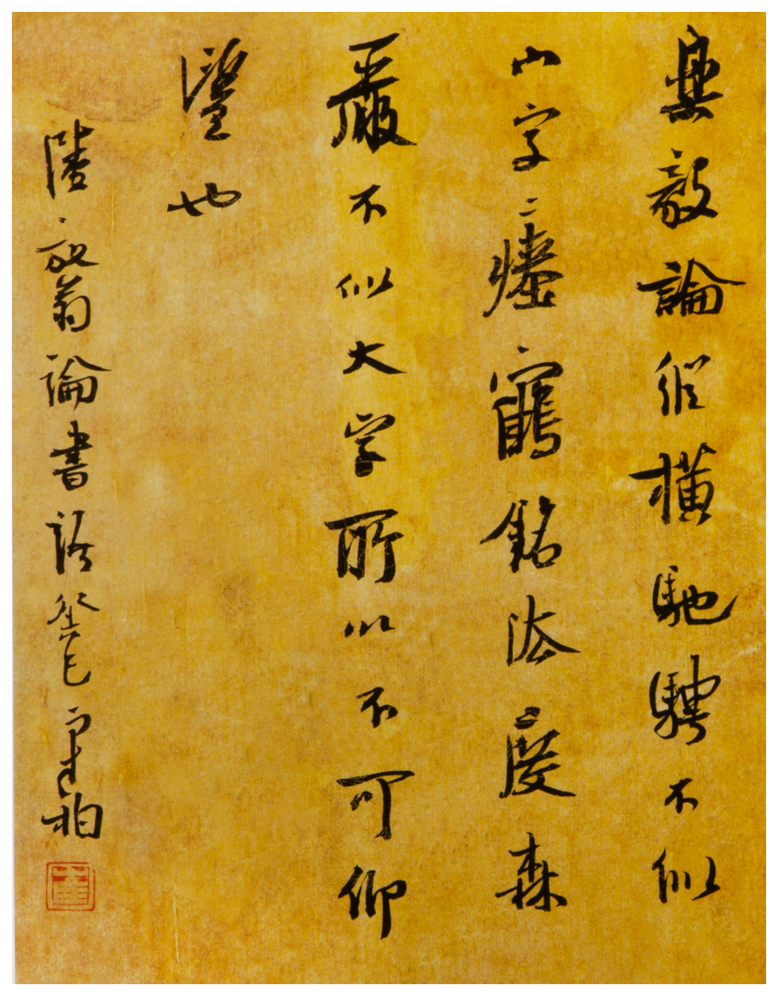 樂毅論縱橫馳騁不似
小字瘞鶴銘法度森
嚴不似大字所以不可仰
望也
陸放翁論書語癸巳柏